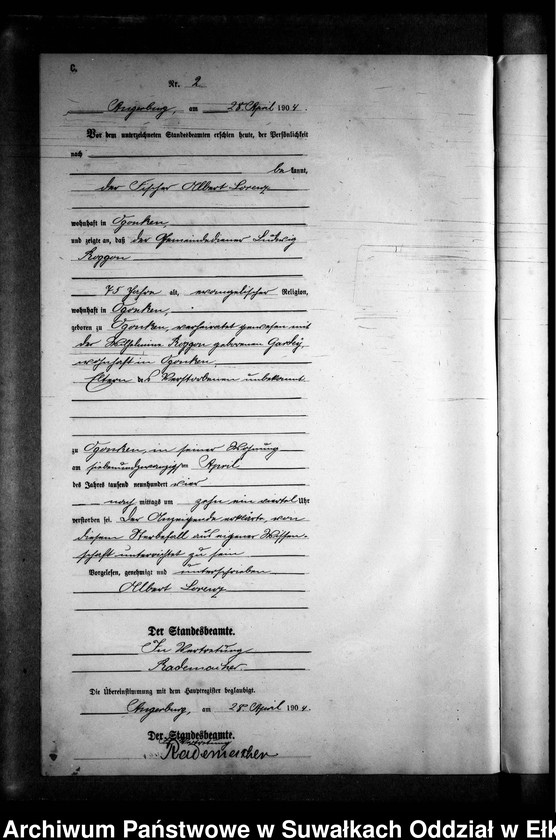 C.
Nr. 2
Angerburg, am 28. April 1904.
Vor dem unterzeichneten Standesbeamten erschien heute, der Persönlichkeit
nach
bekannt,
der Fischer Albert Lorenz
wohnhaft in Ogonken,
und zeigte an, daß der Gemeindediener Ludwig
Roggon
75 Jahre alt, evangelischer Religion,
wohnhaft in Ogonken,
geboren zu Ogonken, verheiratet gewesen mit
der Wilhelmine Roggon geborenen
wohnhaft in Ogonken
Eltern des Verstorbenen unbekannt
zu Ogonken, in seiner Wohnung
am siebenundzwanzigsten April
des Jahres tausend neunhundert vier
nach mittags um zehn ein viertel Uhr
verstorben sei. Der Anzeigende erklärte, von
diesem Sterbefall aus eigener Wissen-
schaft unterrichtet zu sein
Vorgelesen, genehmigt und unterschrieben
Albert Lorenz
Der Standesbeamte.
In Vertretung
Rademacher
Die Übereinstimmung mit dem Hauptregister beglaubigt.
Angerburg, am 28. April 1904.
Der Standesbeamte.
In Vertretung
Rademacher
Archiwum Państwowe w Suwałkach Oddział w Ełk